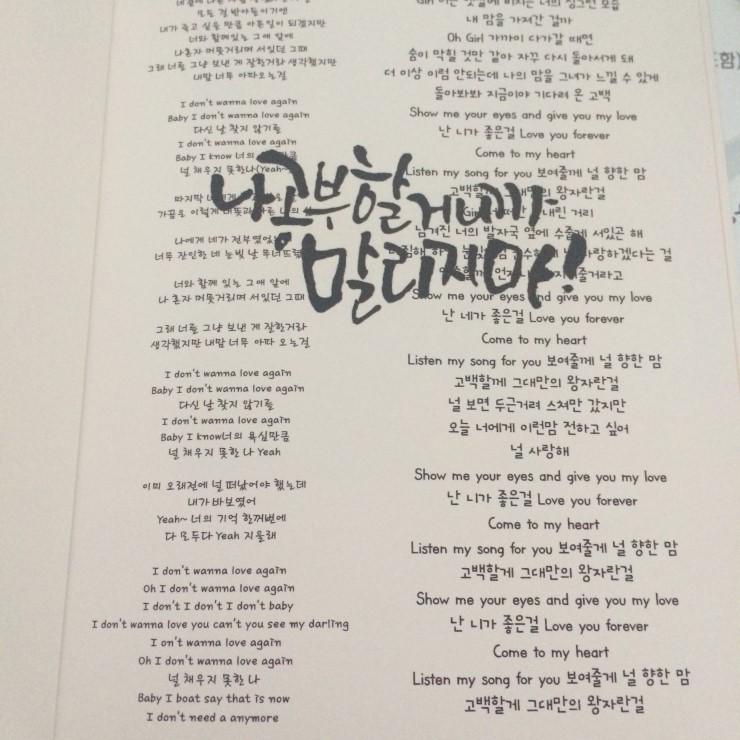 모든 걸 받아들이기엔
내가 죽고 싶을 만큼 아픈일이 되겠지만
너와 함께 있는 그애 앞에
나혼자 머뭇거리며 서있던 그때
그래 너를 그냥 보낸 게 잘한거라 생각했지만
내맘 너무 아파오는걸
I don't wanna love again
Baby I don't wanna love again
다신 날 찾지 않기를
I don't wanna love again
Baby I know 너의
널 채우지 못한나(Yeah~
마지막
가끔은 이렇게
나에게 네가 전부였었
너무 잔인한 네 눈빛 날 무너뜨
너와 함께 있는 그애 앞에
나 혼자 머뭇거리며 서있던 그때
그래 너를 그냥 보낸 게 잘한거라
생각했지만 내맘 너무 아파 오는걸
I don't wanna love again
Baby I don't wanna love again
다신 날 찾지 않기를
I don't wanna love again
Baby I know너의 욕심만큼
널 채우지 못한 나 Yeah
이미 오래전에 널 떠났어야 했는데
내가 바보였어
Yeah~ 너의 기억 한꺼번에
다 모두다 Yeah 지울래
I don't wanna love again
Oh I don't wanna love again
I don't I don't I don't baby
I don't wanna love you can't you see my darling
I on't wanna love again
Oh I don't wanna love again
널 채우지 못한 나
Baby I boat say that is now
I don't need a anymore
내 맘을 가져간 걸까
Oh Girl 가까이 다가갈 때면
숨이 막힐 것만 같아 자꾸 다시 돌아서게 돼
더 이상 이럼 안되는데 나의 맘을 그녀가 느낄 수 있게
돌아봐봐 지금이야 기다려 온 고백
Show me your eyes and give you my love
난 니가 좋은걸 Love you forever
Come to my heart
Listen my song for you 보여줄게 널 향한 맘
고백할게 왕자란걸
내린 거리
남겨진 너의 발자국 옆에 수줍게 서있곤 해
사랑하겠다는 걸
Show me your eyes and give you my love
난 네가 좋은걸 Love you forever
Come to my heart
Listen my song for you 보여줄게 널 향한 맘
고백할게 그대만의 왕자란걸
널 보면 두근거려 스쳐만 갔지만
오늘 너에게 이런맘 전하고 싶어
널 사랑해
Show me your eyes and give you my love
난 니가 좋은걸 Love you forever
Come to my heart
Listen my song for you 보여줄게 널 향한 맘
고백할게 그대만의 왕자란걸
Show me your eyes and give you my love
난 니가 좋은걸 Love you forever
Come to my heart
Listen my song for you 보여줄게 널 향한 맘
고백할게 그대만의 왕자란걸
나 공부할거니까
말리지마!